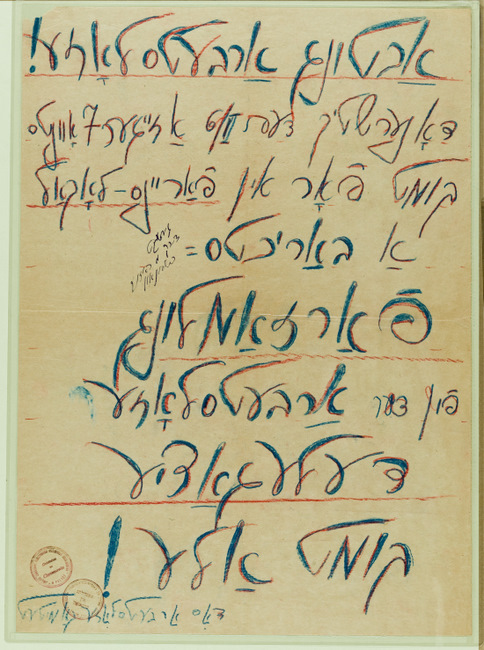 אַכטונג אַרבעטסלאָזע!
דאָנערשטיק דעם אַ זייגער 7 אָוונט
קומט פֿאָר אין פֿאַריינס-לאָקאַל
אַ באַריכטס=
פֿאַרזאַמלונג
פֿון דער אַרבעטסלאָזער
דעלעגאַציע
קומט אַלע!
דאָס אַרבעטסלאָזן קאָמיטעט